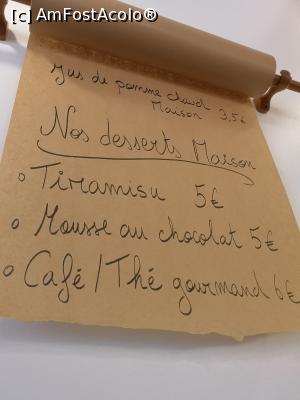 [c] AmFostAcolo®
Jus de pomme chaud
Maison 3,5€
Nos desserts Maison
o Tiramisu 5€
o Mousse au chocolat 5€
o Café / Thé gourmand 6€